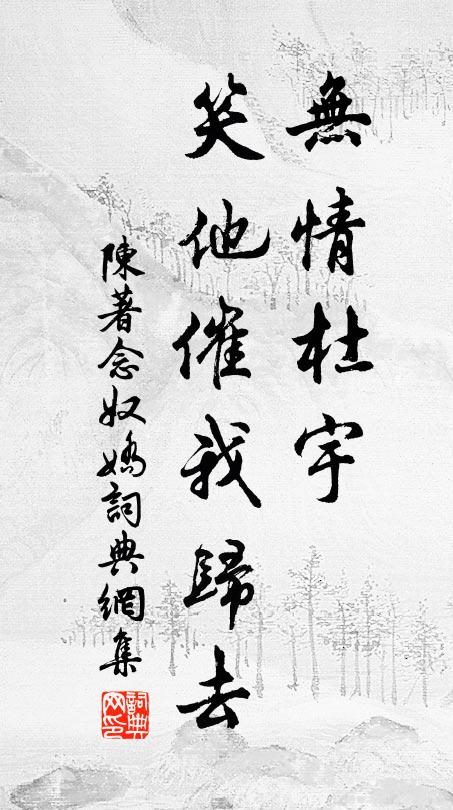 無情杜宇
笑他催我歸去
陳著念奴嬌詞典網集
詞典
网印